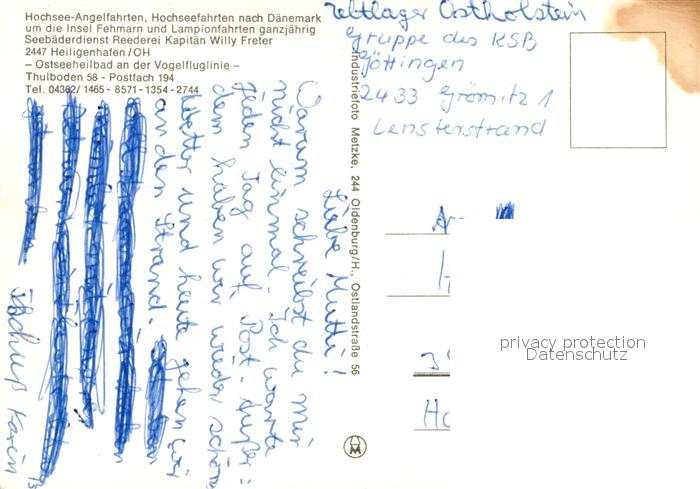 Hochsee-Angelfahrten, Hochseefahrten nach Dänemark
um die Insel Fehmarn und Lampionfahrten ganzjährig
Seebäderdienst Reederei Kapitän Willy Freter
2447 Heiligenhafen/OH
– Ostseeheilbad an der Vogelfluglinie –
Thulboden 58 - Postfach 194
Tel. 04362/ 1465 - 8571 - 1354 - 2744
Zeltlager Ostholstein
Gruppe des KSB
Göttingen
2433 Grömitz 1
Lensterstrand
Liebe Mutti!
Warum schreibst du mir
nicht einmal. Ich warte
jeden Tag auf Post. Außer-
dem haben wir wieder schönes
Wetter und heute gehen wir
an den Strand.
Tschüß Karin
Industriefoto Metzke, 244 Oldenburg/H., Ostlandstraße 56
privacy protection
Datenschutz